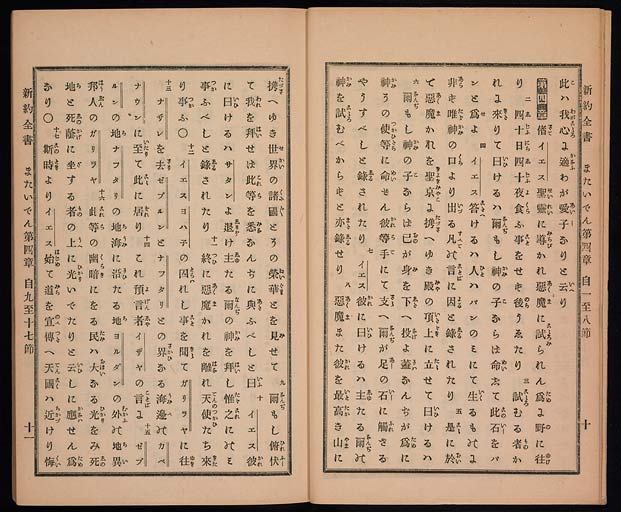 新約全書　またいでん第四章　自一至八節　十
此ハ我心に適わが愛子なりと云り
第四章　偖イエス聖靈に導かれ惡魔に試られん爲に野に往
り　二　四十日四十夜食ふ事をせず後うゑたり　三　試むる者か
れに來りて曰けるハ爾もし神の子ならば命て此石をパ
ンと爲よ　四　イエス答けるハ人ハパンのミにて生るものに
非ず唯神の口より出る凡の言に因と錄されたり　五　是に於
て惡魔かれを聖京に携へゆき殿の頂上に立せて曰けるハ
六　爾もし神の子ならば己が身を下へ投よ蓋なんぢが爲に
神その使等に命せん彼等手にて支へ爾が足の石に觸ざる
やうすべしと錄されたり　七　イエス彼に曰けるハ主たる爾の
神を試むべからずと亦錄せり　八　惡魔また彼を最高き山に
新約全書　またいでん第四章　自九至十七節　十一
携へゆき世界の諸國とその榮華とを見せて　九　爾もし俯伏
て我を拜せば此等を悉なんぢに與ふべしと曰　十　イエス彼
に曰けるハサタンよ退け主たる爾の神を拜し惟之にのミ
事ふべしと錄されたり　十一　終に惡魔かれを離れ天使たち來
り事ふ〇　十二　イエスヨハ子の囚れし事を聞てガリラヤに往
十三　ナザレを去ゼブルンとナフタリとの界なる海邊のカペ
ナウンに至て此に居り　十四　これ預言者イザヤの言に　十五　ゼブ
ルンの地ナフタリの地海に沿たる地ヨルダンの外の地異
邦人のガリラヤ　十六　此等の幽暗にをる民ハ大なる光をみ死
地と死蔭に坐する者の上に光いでたりと云しに應せん爲
なり〇　十七　斯時よりイエス始て道を宣傳へ天國ハ近けり悔